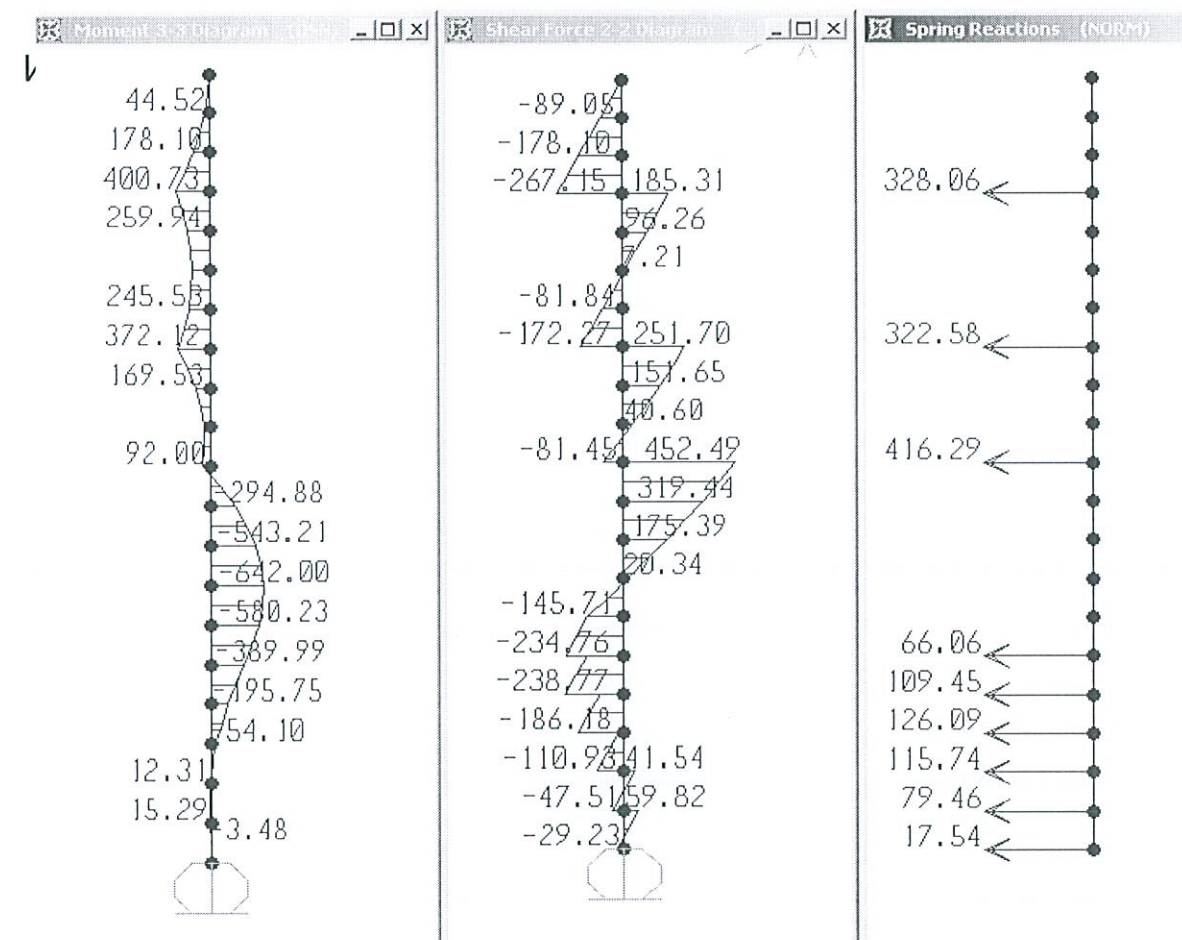 Moment 3-3 Diagram
44.52
178.10
400.73
259.94
245.53
372.12
169.53
92.00
-294.88
-543.21
-642.00
-580.23
-389.99
-195.75
-54.10
12.31
15.29
-3.48
Shear Force 2-2 Diagram
-89.05
-178.10
-267.15 185.31
96.26
7.21
-81.84
-172.27 251.70
151.65
40.60
-81.45 452.49
319.44
175.39
20.34
-145.71
-234.76
-238.77
-186.18
-110.93 41.54
-47.51 59.82
-29.23
Spring Reactions (NORM)
328.06
322.58
416.29
66.06
109.45
126.09
115.74
79.46
17.54